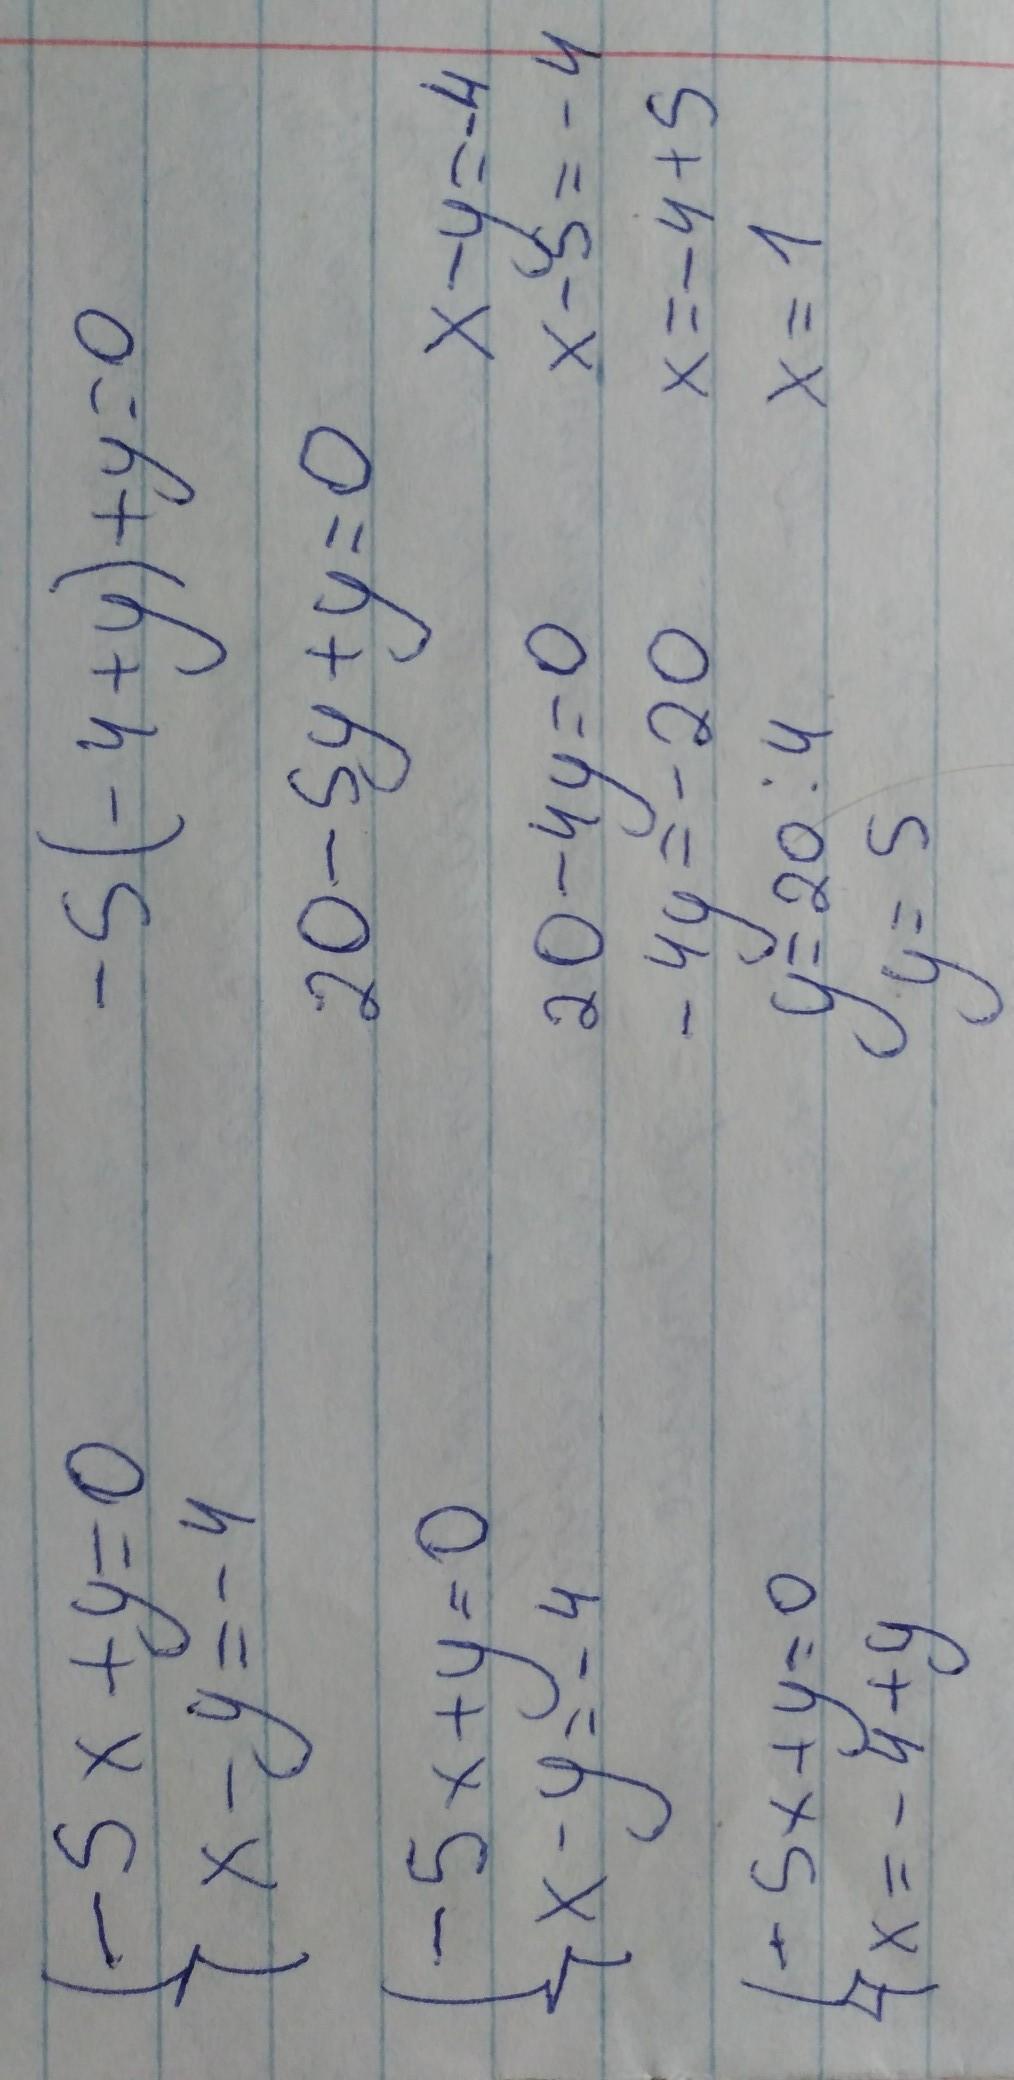 -5x+y=0
x-y=-4
-5x+y=0
x-y=-4
-5x+y=0
x=-4+y
-5(-4+y)+y=0
20-5y+y=0
20-4y=0
-4y=-20
y=20:4
y=5
x-y=-4
x-5=-4
x=-4+5
x=1